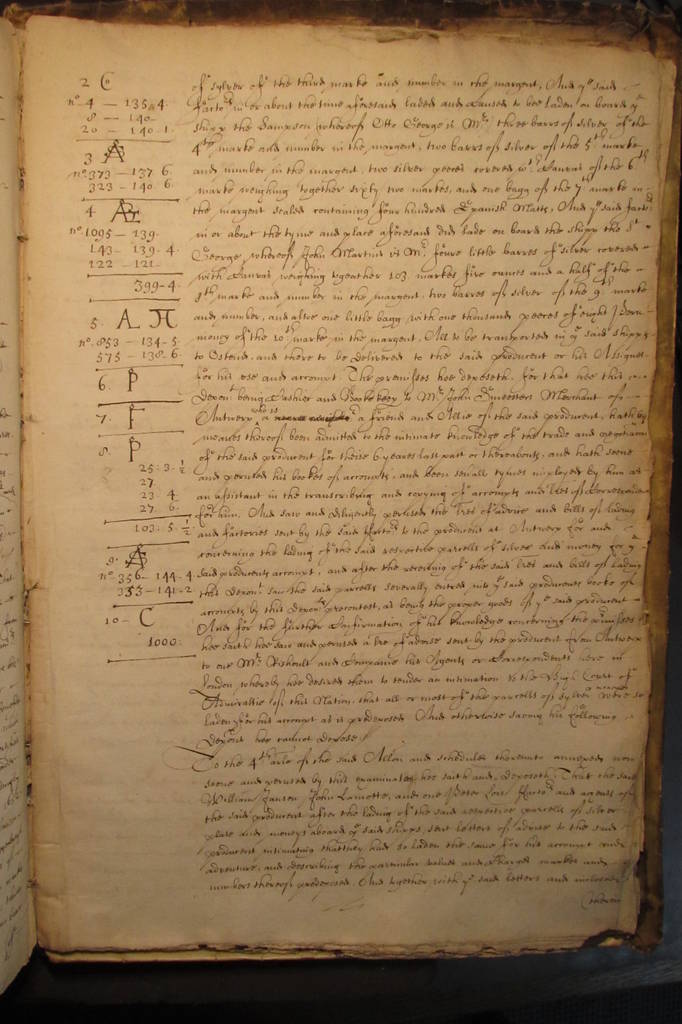 2 C
no. 4 — 135. 4.
8 — 140.
20 — 140. 1.
3
no. 373 — 137 6.
323 — 140. 6.
4
no. 1095 — 139.
143 — 139. 4.
122 — 121
399 - 4.
5. A
no. 853 — 134 - 5.
575 — 138. 6.
6. P
7. F
8. P
25 : 3 : 1/2
27.
23 4.
27. 6.
103. 5. 1/2
9.
no. 356 — 144 - 4
353 — 141 - 2
10 - C
1000.
of sylver of the third marke and number in the margent, And ye said
factor in or about the time aforesaid laded and caused to bee laden on board ye
shipp the Sampson whereof Otto George is Mr. three barrs of silver of the
4th marke and number in the margent, two barrs of silver of the 5th marke
and number in the margent, two silver peeces covered wth Canvas of the 6th
marke weighing together sixty two markes, and one bagg of the 7th marke in
the margent sealed containing four hundred Spanish Matts, And ye said factor
in or about the tyme and place aforesaid did lade on board the shipp the St
George, whereof John Martins is Mr. foure little barres of silver covered
with Canvas weighing together 103 markes five ounces and a half of the
8th marke and number in the margent, two barres of silver of the 9th marke
and number, and alsoe one little bagg with one thousand peeces of eight
money of the 10th marke in the margent, All to be transported in ye said shipps
to Ostend, and there to be delivered to the said producent or his Assignes
for his use and account. The premisses hee deposeth, for that hee this
Depont being Cashier and Booke keeper to Mr. John Merchant of
Antwerp who is a friend and Allie of the said producent, hath by
meanes thereof been admitted to the intimate knowledge of the trade and negotiation
of the said producent for theise 6 yeares last past or thereabouts, and hath seene
and perused his bookes of accompts, and been severall tymes imployed by him as
an assistant in the transcribing and copying of accompts and Lres of Correspondence
for him, And saw and diligently perused the Lres of advice and bills of lading
and factories sent by the said factors to the producent at Antwerp for and
concerning the lading of the said respective parcells of silver and money for ye
said producents account, and after the receiving of the said Lres and bills of lading
this Depont saw the said parcells severally entred into ye said producents booke of
accompts by this Deponts precontest, as being the proper goods of ye said producent
And for the further Confirmation of his knowledge concerning the premisses
hee saith hee saw and perused a Lre of advice sent by the producent from Antwerp
to one Mr. and Companie his Agents or Correspondents here in
London, whereby hee desired them to tender an intimation to the High Court of
Admiraltie of this Nation, that all or most of the parcells of Sylver were so
laden for his accompt as is predeposed, And otherwise saving his following
Depont hee cannot depose.
To the 4th arle of the said Allon and schedules thereunto annexed now
seene and perused by this examinate hee saith and deposeth, That the said
William Jansen, John Lamotte, and one Peter factors and agents of
the said producent after the lading of the said respective parcells of silver
plate and moneys aboard ye said shipps, sent letters of advise to the said
producent intimating that they had so laden the same for his account and
adventure, and describing the particular values and markes and
numbers thereof predeposed, And together with ye said letters and inclosed
therein